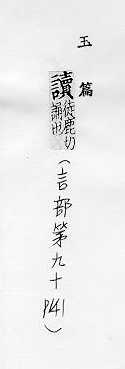 玉篇
讀徒鹿切
誦也
(言部第九十